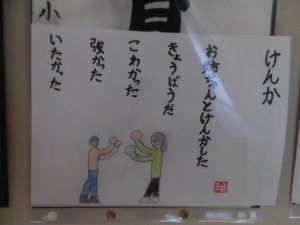 けんか
お姉ちゃんとけんかした
きょうぼうだ
こわかった
強かった
いたかった
小